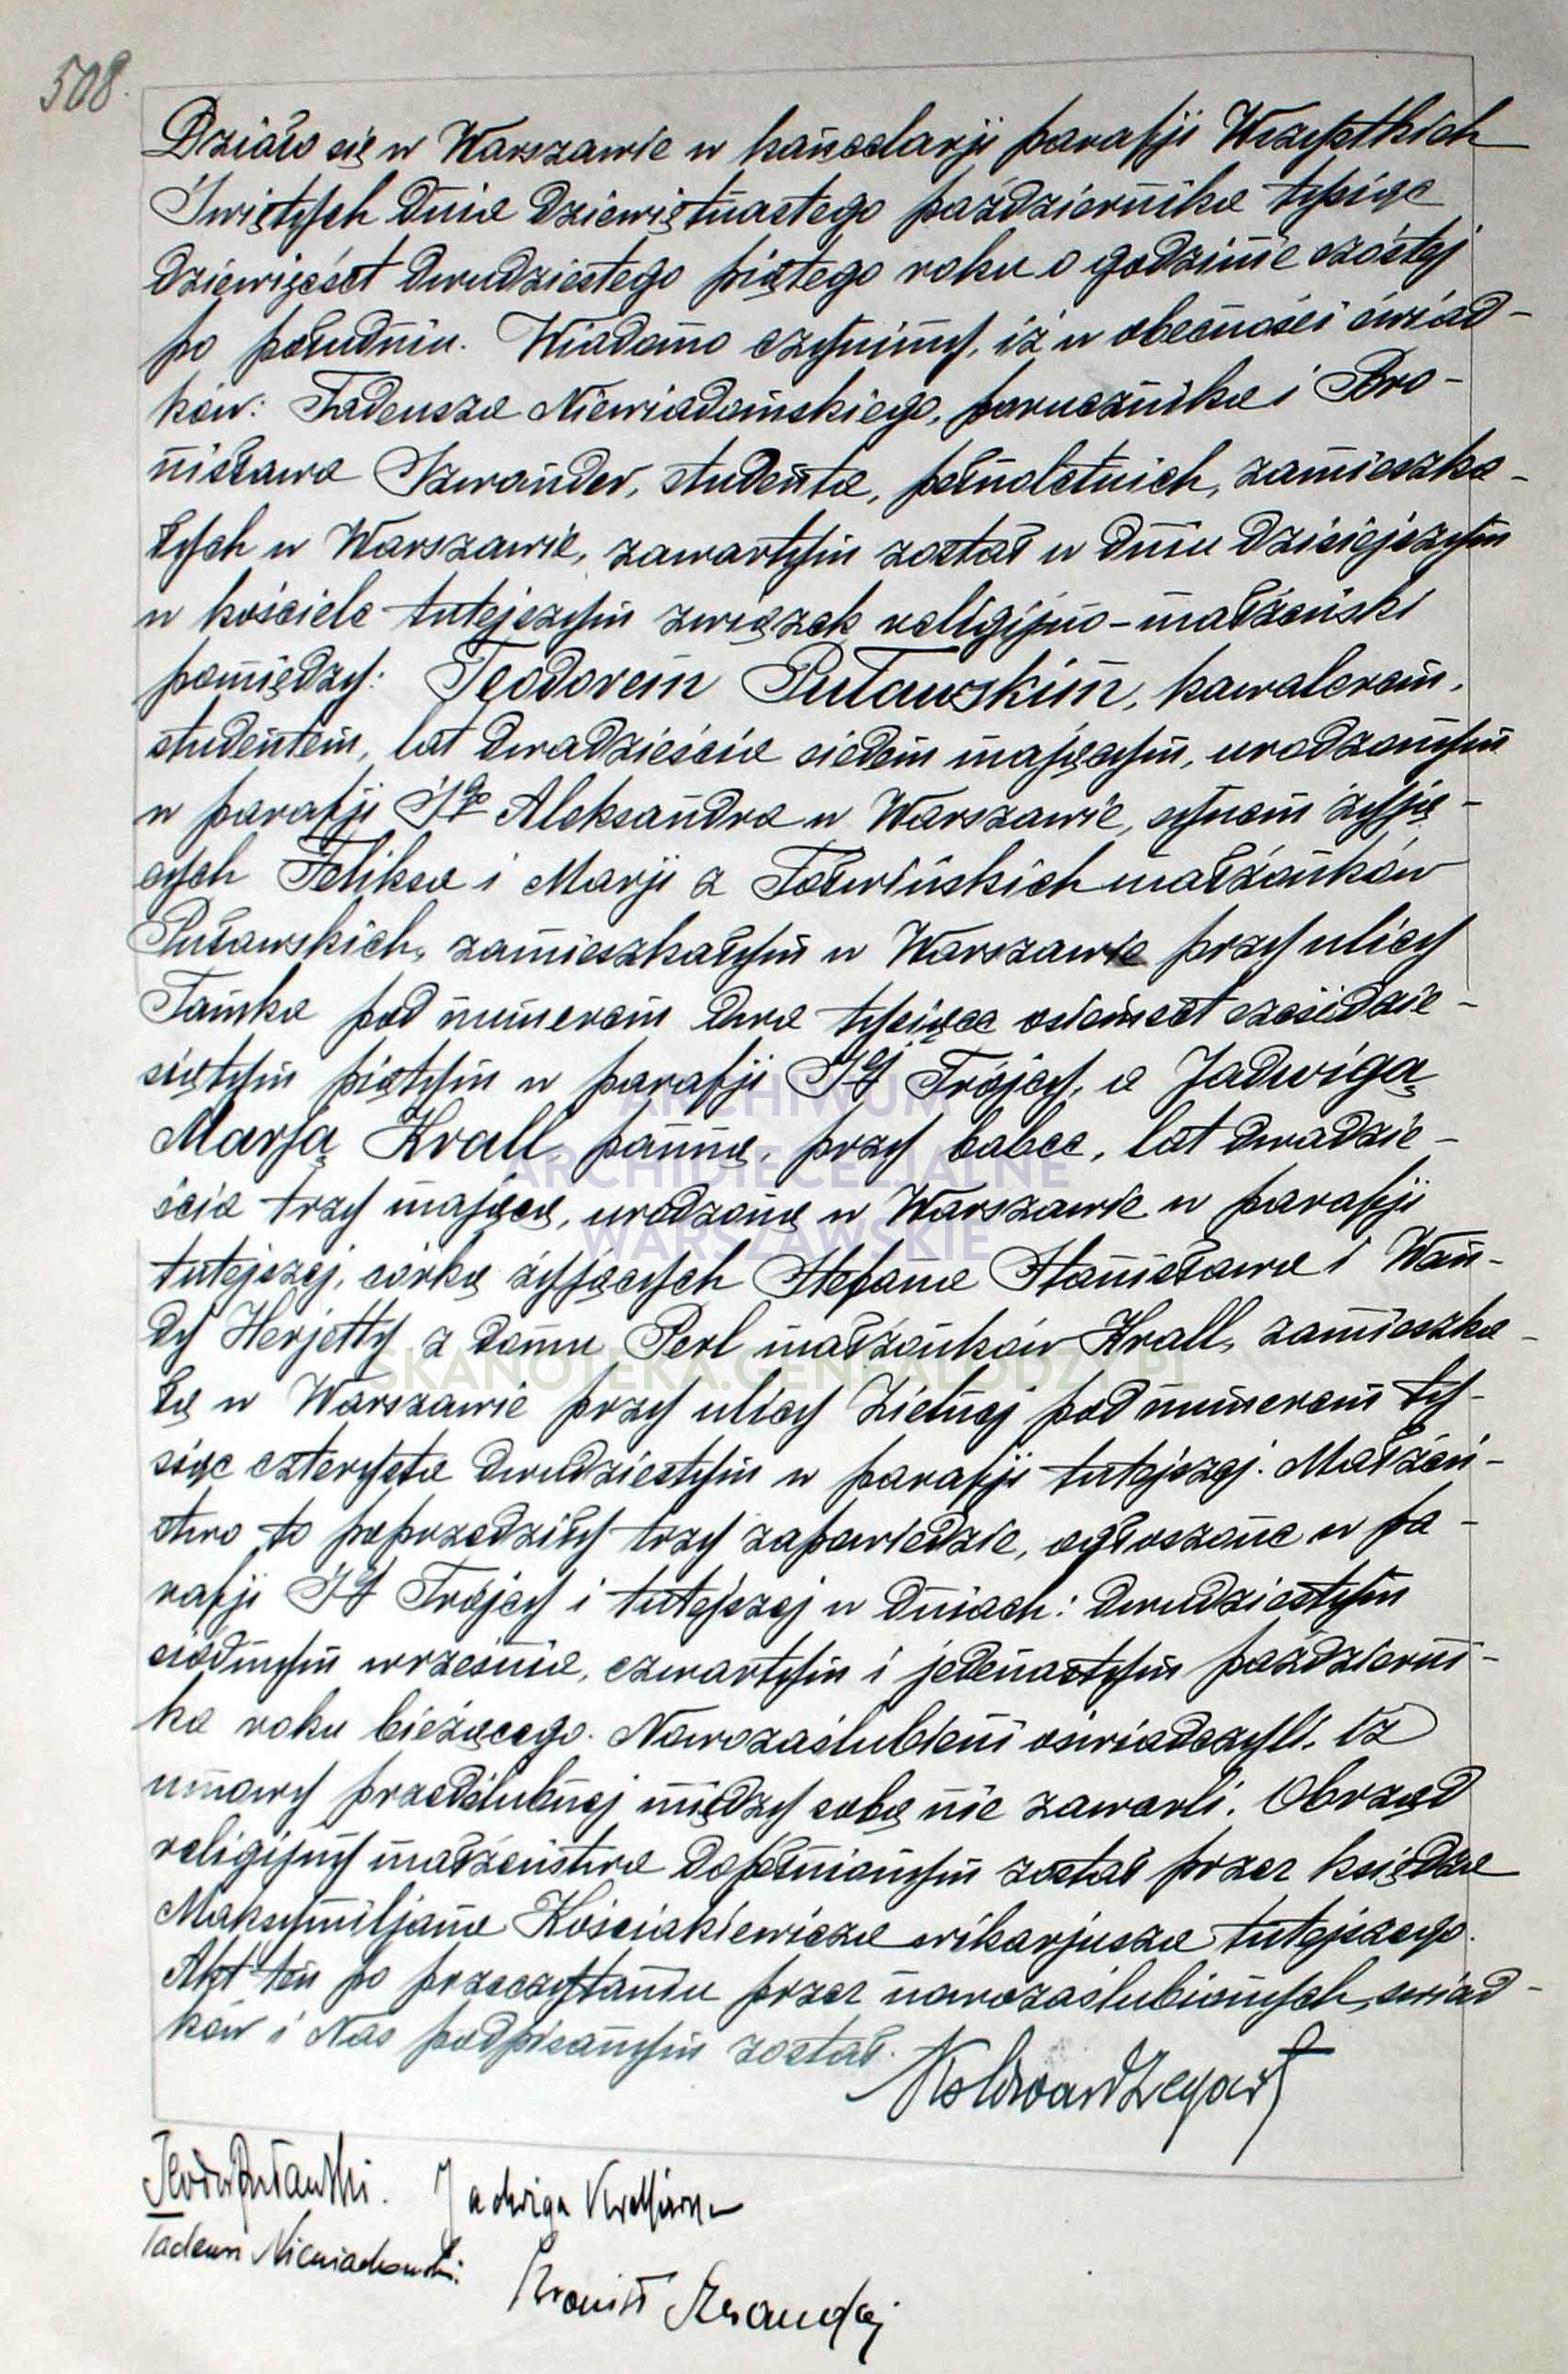 508.
Działo się w Warszawie w kancelarji parafji Wszystkich
Świętych dnia dziewiętnastego października tysiąc
dziewięćset dwudziestego piątego roku o godzinie szóstej
po południu. Wiadomo czynimy, iż w obecności świad-
ków: Tadeusza Niewiadomskiego, porucznika i Bro-
nisława Szwander, studenta, pełnoletnich, zamieszka-
łych w Warszawie, zawartym został w dniu dzisiejszym
w kościele tutejszym związek religijno-małżeński
pomiędzy: Teodorem Puławskim, kawalerem,
studentem, lat dwadzieścia siedem mającym, urodzonym
w parafji Śgo Aleksandra w Warszawie, synem żyją-
cych Feliksa i Marji z Tołwińskich małżonków
Puławskich, zamieszkałym w Warszawie przy ulicy
Tamka pod numerem dwa tysiące osiemset sześćdzie-
siątym piątym w parafji Śtej Trójcy, a Jadwigą
Marją Krall, panną, przy babce, lat dwadzie-
ścia trzy mającą, urodzoną w Warszawie w parafji
tutejszej, córką żyjących Stefana Stanisława i Wan-
dy Herjetty z domu Perl małżonków Krall, zamieszka-
łą w Warszawie przy ulicy Zielnej pod numerem ty-
siąc czterysta dwudziestym w parafji tutejszej. Małżeń-
stwo to poprzedziły trzy zapowiedzie, ogłoszone w pa-
rafji Śtej Trójcy i tutejszej w dniach: dwudziestym
siódmym września, czwartym i jedenastym październi-
ka roku bieżącego. Nowozaślubieni oświadczyli, iż
umowy przedślubnej między sobą nie zawarli. Obrząd
religijny małżeństwa dopełnionym został przez księdza
Maksymiljana Kościakiewicza wikarjusza tutejszego.
Akt ten po przeczytaniu przez nowozaślubionych, świad-
ków i Nas podpisanym został.
Teodor Puławski. Jadwiga Krallówna
Tadeusz Niewiadomski.
ARCHIWUM
ARCHIDIECEZJALNE
WARSZAWSKIE
SKANOTEKA.GENEALODZY.PL